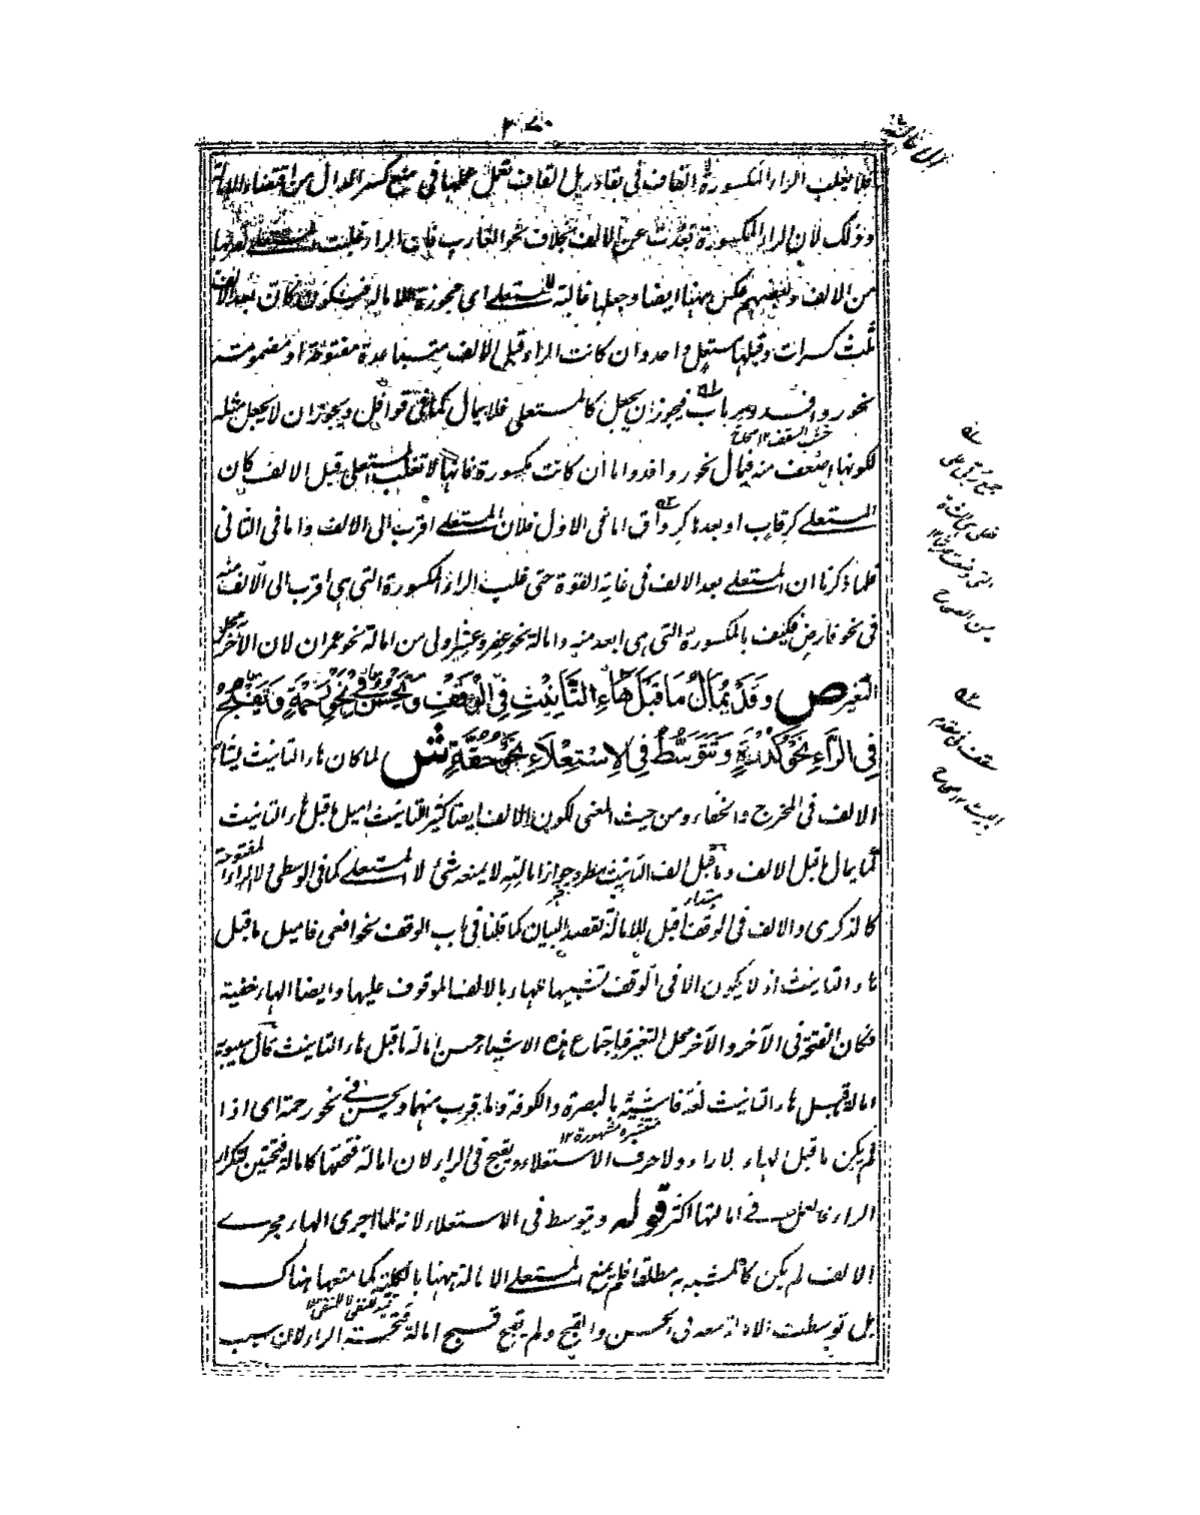 ٣٧٠
الامالة
فلا يغلب الراء المكسورة القاف فى بقادر بل القاف تعمل عملها فى منع كسر الدال من اقتضاء الامالة
وذلك لان الراء المكسورة تبعدت عن الالف بخلاف نحو الغارب فان الراء غلبت المستعلے لقربها
من الالف وبعضهم عكس ههنا ايضا وجعلها غالبة للمستعلے اى مجوزة للامالة فيكون كان بعد الالف
ثلث كسرات وقبلها مستعل واحد وان كانت الراء قبل الالف متباعدة مفتوحة او مضمومة
نحو روافد وبرباب فيجوز ان يجعل كالمستعلى فلا يمال كما فى قوافل ويجوز ان لا يجعل مثله
خشب السقف ١٢ صحاح
لكونها اضعف منه فيمال نحو روافد واما ان كانت مكسورة فانها لا تغلب المستعلے قبل الالف كان
المستعلے كرقاب او بعدها كرواق اما فى الاول فلان المستعلے اقرب الى الالف واما فى الثانى
فلما ذكرنا ان المستعلے بعد الالف فى غاية القوة حتى غلب الراء المكسورة التى هى اقرب الى الالف منه
فى نحو فارض فكيف بالمكسورة التى هى ابعد منه وامالة نحو عفر وعشر اولى من امالة نحو عمران لان الآخر محل
التغير ص وَقَدْ يُمَالُ مَا قَبْلَ هَاءِ التَّانِيْثِ فِى الْوَقْفِ وَتَحْسُنُ فِى نَحْوِ رَحْمَةٍ وَتَقْبُحُ
فِى الرَّاءِ نَحْوُ كُدْرَةٍ وَتَتَوَسَّطُ فِى الْاِسْتِعْلَاءِ نَحْوُ حُقَّةٍ ش لما كان هاء التانيث يشابه
الالف فى المخرج والخفاء ومن حيث المعنى لكون الالف ايضا كثيرا للتانيث اميل ما قبل هاء التانيث
كما يمال ما قبل الالف وما قبل الف التانيث مطرد جواز امالته لا يمنعه شئ لا المستعلے كما فى الوسطى ولا الراء المفتوحة
كالذكرى والالف فى الوقف اقبل للامالة لقصد البيان كما قلنا فى باب الوقف نحو افعى فاميل ما قبل
هاء التانيث اذ لا يكون الا فى الوقف تشبيها للهاء بالالف الموقوف عليها وايضا الهاء خفية
فكان الفتحة فى الآخر والآخر محل التغير فباجتماع هذه الاشياء حسن امالة ما قبل هاء التانيث قال سيبويه
امالة ما قبل هاء التانيث لغة فاشية بالبصرة والكوفة وما قرب منهما ويحسن فى نحو رحمة اى اذا
منتشرة مشهورة ١٢
لم يكن ما قبل الهاء لا راء ولا حرف الاستعلاء ويقبح فى الراء لان امالة فتحتها كامالة فتحتين لتكرار
الراء فالعمل فے امالتها اكثر قوله ويتوسط فى الاستعلاء لانه لما اجرى الهاء مجرے
الالف لم يكن كالمشبه به مطلقا فلم يمنع المستعلے الامالة ههنا بالكلية كما منعها هناك
قيد للنفى لا للمنفى ١٢
بل توسطت الامالة معه فى الحسن والقبح ولم يقبح قبح امالة فتحة الراء لان سبب